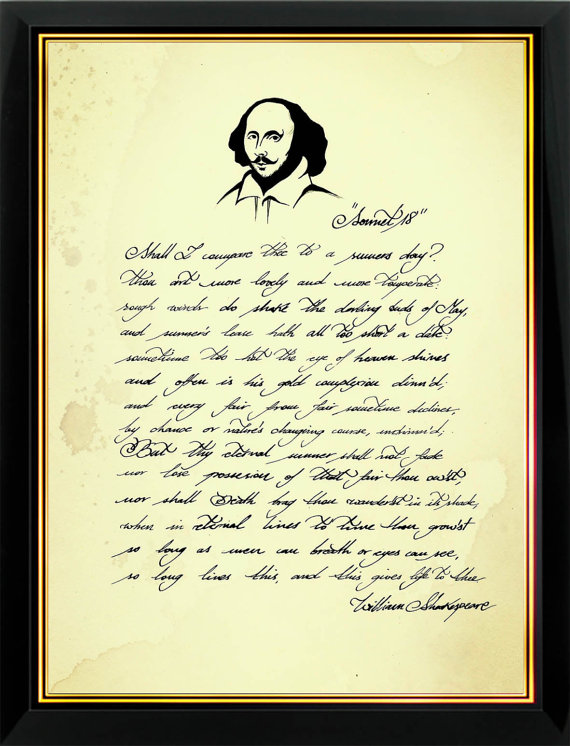 "Sonnet 18"
Shall I compare thee to a summers day?
thou art more lovely and more temperate:
rough winds do shake the darling buds of May,
and summer's lease hath all too short a date:
sometime too hot the eye of heaven shines
and often is his gold complexion dimm'd;
and every fair from fair sometime declines,
by chance or nature's changing course, untrimm'd;
But thy eternal summer shall not fade
nor lose possession of that fair thou ow'st,
nor shall Death brag thou wanderst in its shade,
when in eternal lines to time thou grow'st
so long as men can breath or eyes can see,
so long lives this, and this gives life to thee
William Shakespeare